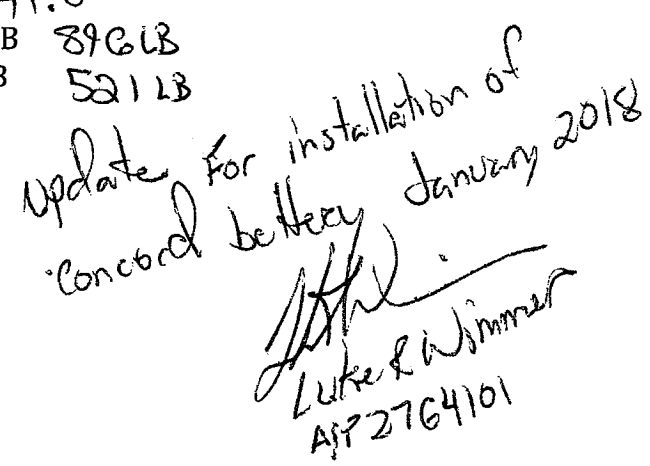 B 896 LB
521 LB
update For installation of
Concord battery January 2018
Luke R Wimmer
A&P 2764101